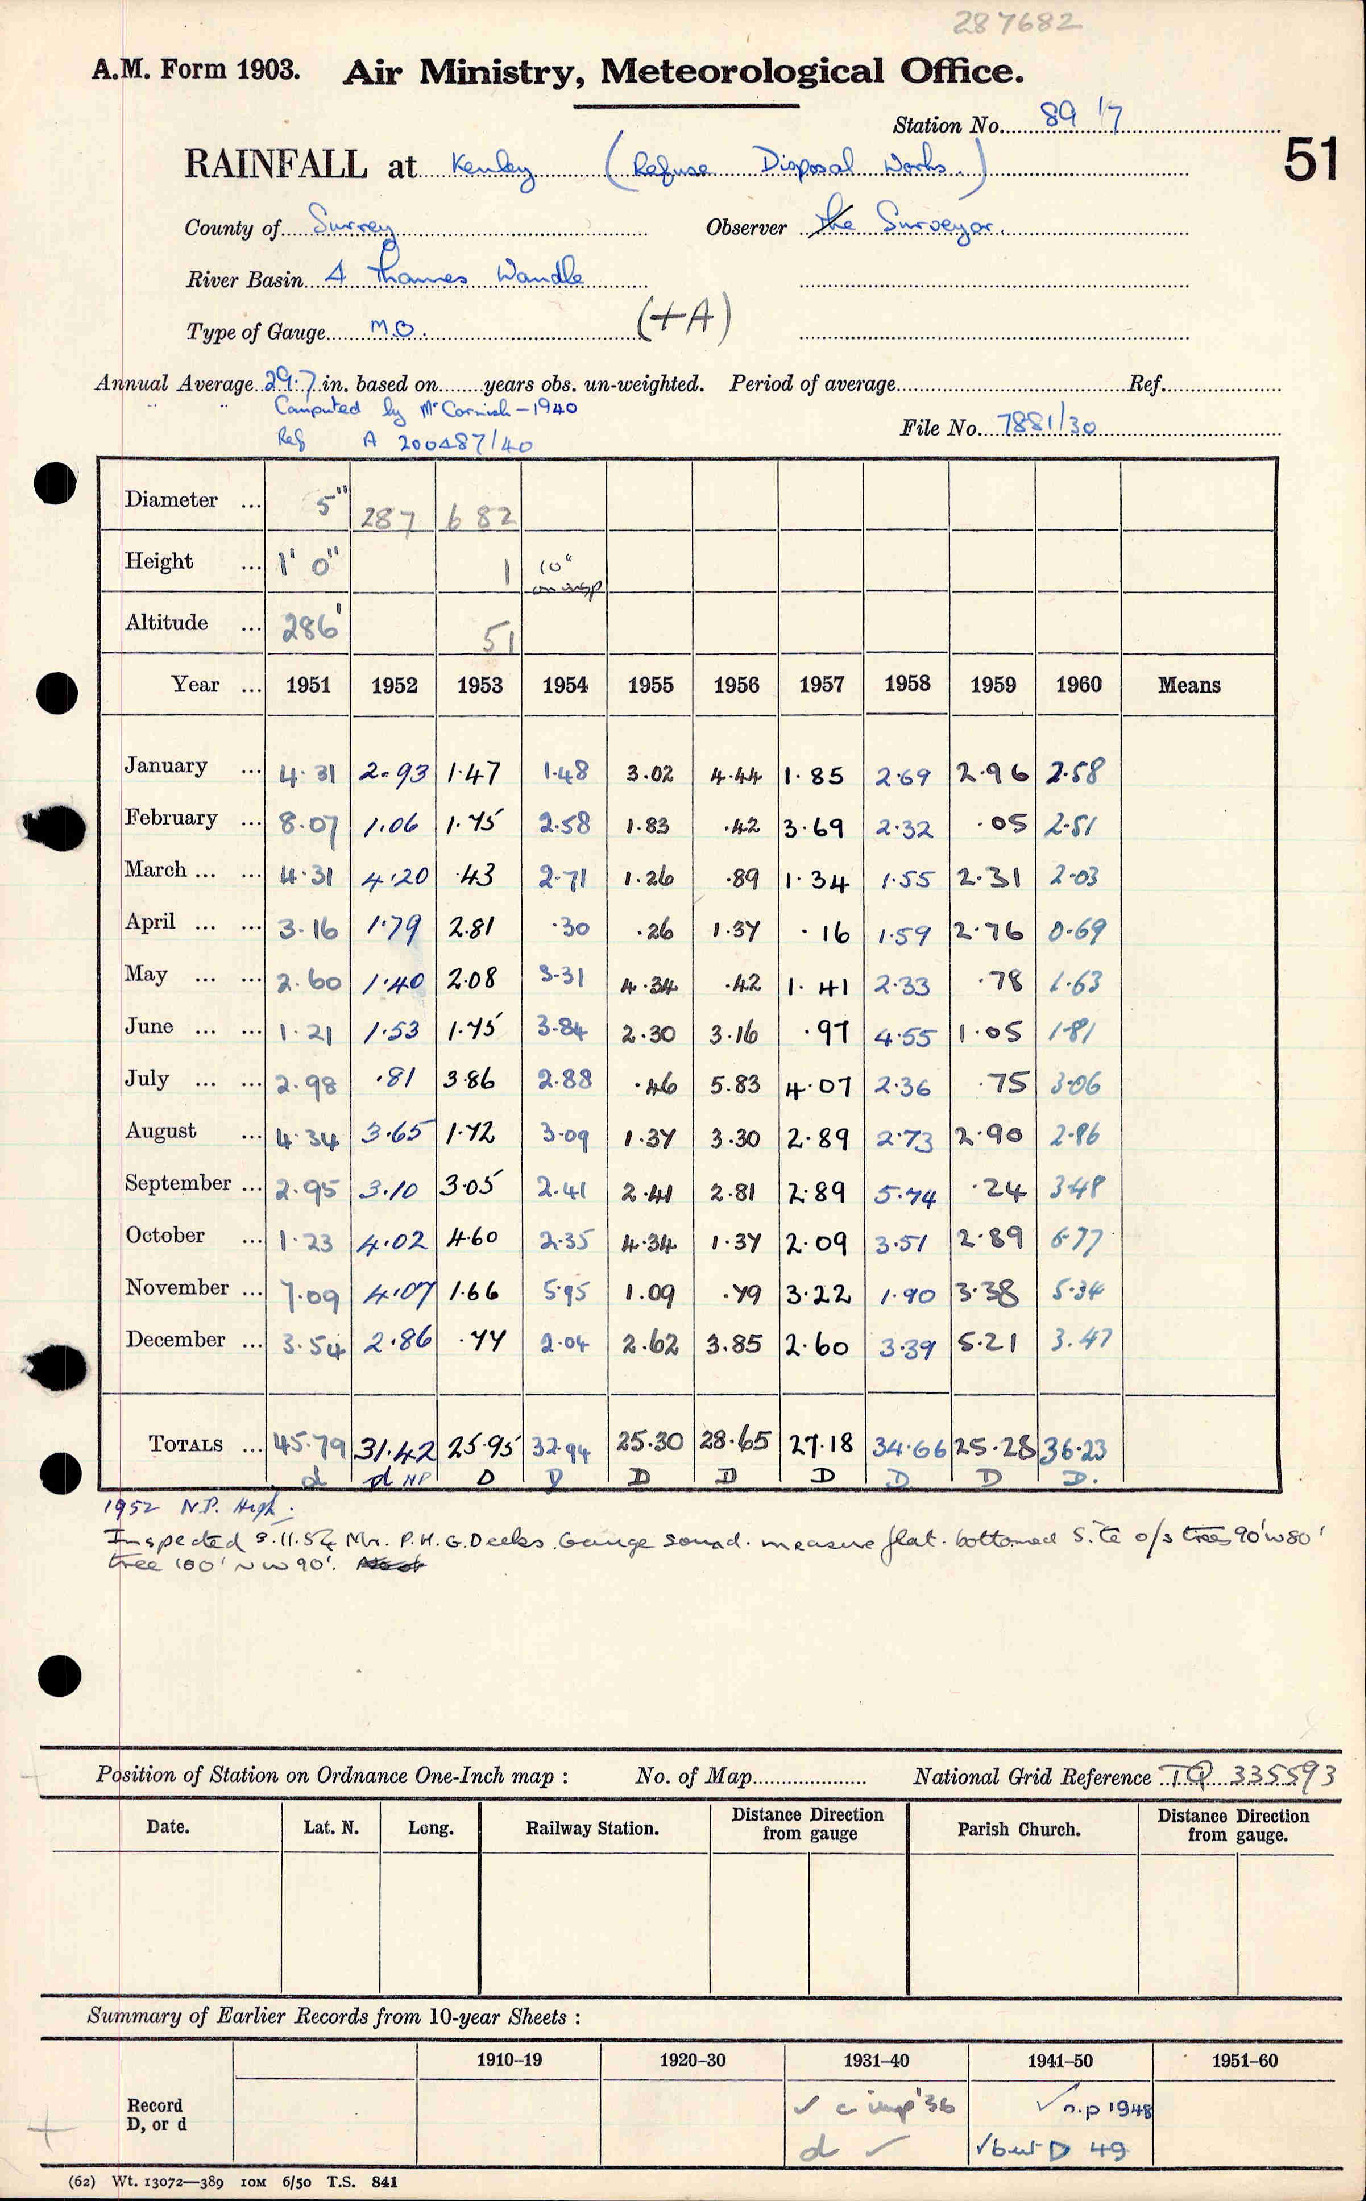 287682
A.M. Form 1903. Air Ministry, Meteorological Office.
Station No. 89 17
51
RAINFALL at Kenley (Refuse Disposal Works.)
County of Surrey Observer the Surveyor.
River Basin 4 Thames Wandle
Type of Gauge M.O. (+A)
Annual Average 29.7 in. based on years obs. un-weighted. Period of average Ref.
" " Computed by Mr Cornish - 1940
File No. 7881/30
Ref A 200487/40
Diameter ... 5" 287 682
Height ... 1' 0" 1 10" on insp
Altitude ... 286' 51
Year ... 1951 1952 1953 1954 1955 1956 1957 1958 1959 1960 Means
January ... 4.31 2.93 1.47 1.48 3.02 4.44 1.85 2.69 2.96 2.58
February ... 8.07 1.06 1.75 2.58 1.83 .42 3.69 2.32 .05 2.51
March ... ... 4.31 4.20 .43 2.71 1.26 .89 1.34 1.55 2.31 2.03
April ... ... 3.16 1.79 2.81 .30 .26 1.37 .16 1.59 2.76 0.69
May ... ... 2.60 1.40 2.08 3.31 4.34 .42 1.41 2.33 .78 1.63
June ... ... 1.21 1.53 1.75 3.84 2.30 3.16 .97 4.55 1.05 1.81
July ... ... 2.98 .81 3.86 2.88 .46 5.83 4.07 2.36 .75 3.06
August ... 4.34 3.65 1.72 3.09 1.37 3.30 2.89 2.73 2.90 2.86
September ... 2.95 3.10 3.05 2.41 2.41 2.81 2.89 5.74 .24 3.48
October ... 1.23 4.02 4.60 2.35 4.34 1.37 2.09 3.51 2.89 6.77
November ... 7.09 4.07 1.66 5.95 1.09 .79 3.22 1.90 3.38 5.34
December ... 3.54 2.86 .77 2.04 2.62 3.85 2.60 3.39 5.21 3.47
TOTALS ... 45.79 31.42 25.95 32.94 25.30 28.65 27.18 34.66 25.28 36.23
d d NP D D D D D D D D.
1952 N.P. High.
Inspected 9.11.54 Mr. P.H.G. Deeks. Gauge sound. measure flat. bottomed Site o/s trees 90' W 80'
tree 100' NW 90'.
Position of Station on Ordnance One-Inch map : No. of Map National Grid Reference TQ 335593
Date. Lat. N. Long. Railway Station. Distance Direction from gauge Parish Church. Distance Direction from gauge.
Summary of Earlier Records from 10-year Sheets :
1910–19 1920–30 1931–40 1941–50 1951–60
Record ✓ c insp '36 ✓ n.p 1948
D, or d d ✓ ✓ but D 49
(62) Wt. 13072—389 10M 6/50 T.S. 841